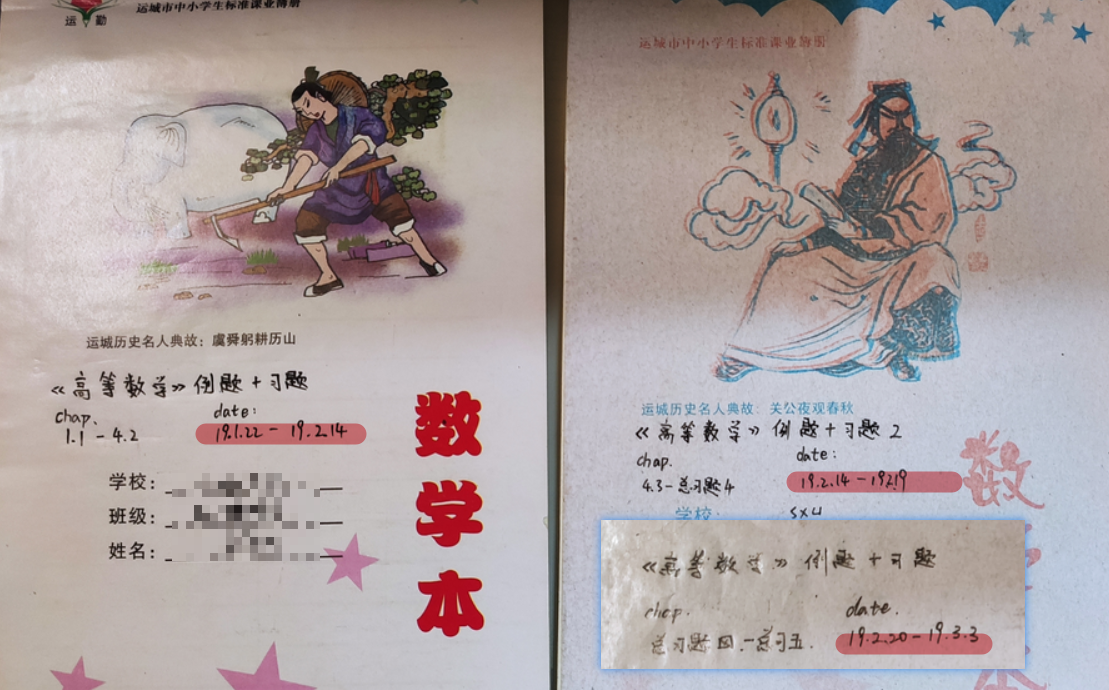 运 勤
运城市中小学生标准课业簿册
运城历史名人典故：虞舜躬耕历山
《高等数学》例题+习题
chap.
date:
1.1-4.2
19.1.22-19.2.14
学校：
班级：
姓名：
数学本
运城市中小学生标准课业簿册
运城历史名人典故：关公夜观春秋
《高等数学》例题+习题2
chap.
date:
4.3-总习题4
19.2.14-19.2.19
学校：
数
《高等数学》例题+习题
chap.
date.
总习题四.-总习五.
19.2.20-19.3.3
本